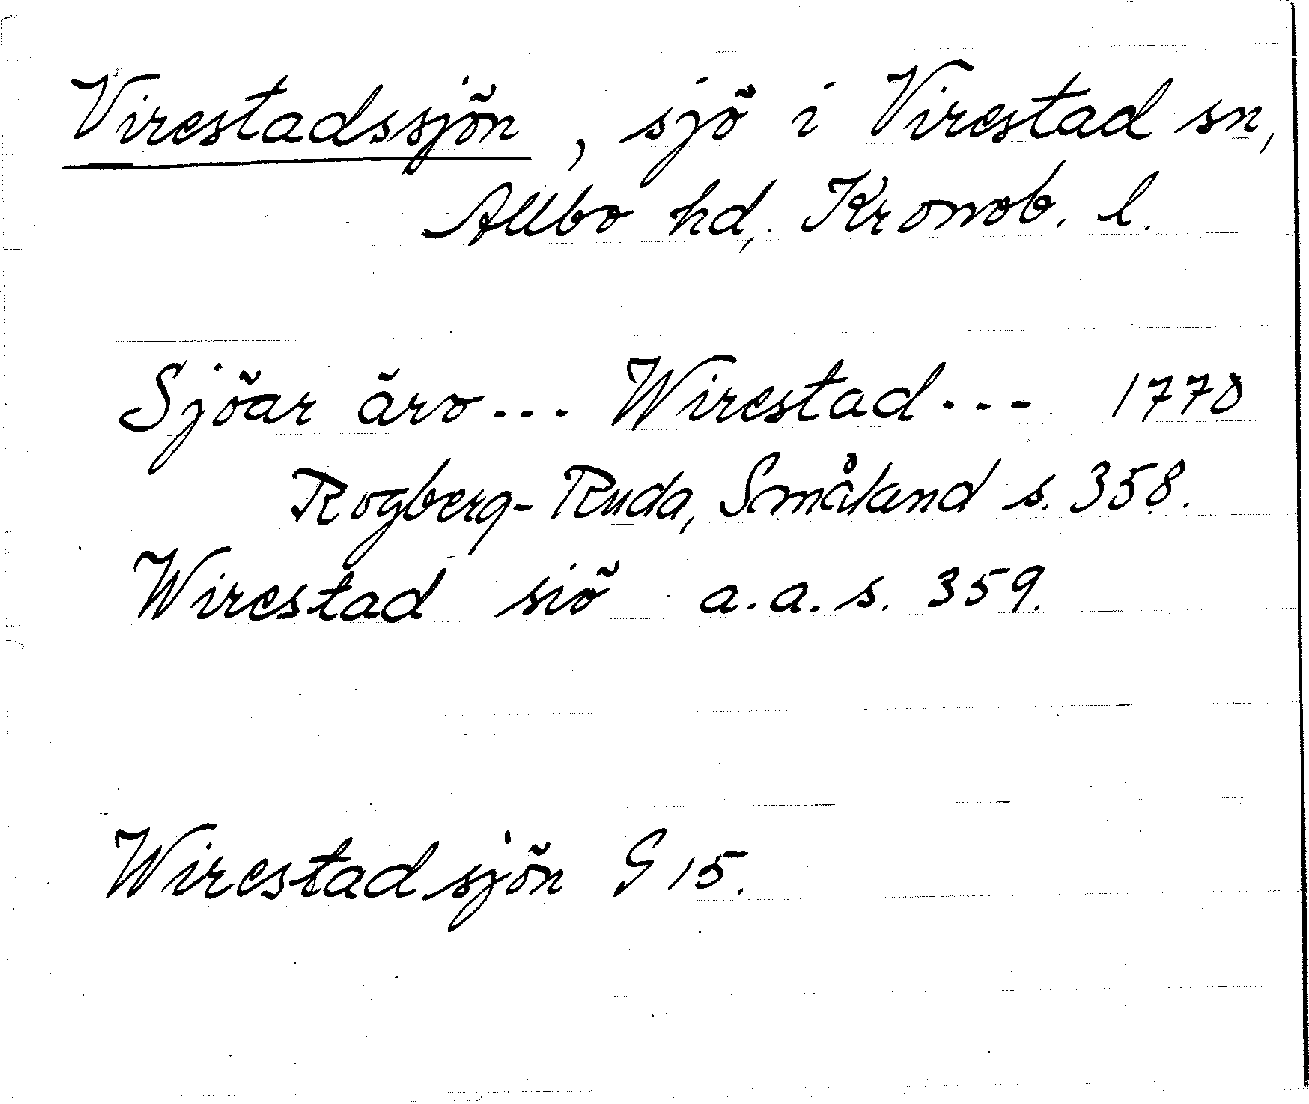 Virestadssjön, sjö i Virestad sn,
Allbo hd, Kronob. l.
Sjöar äro... Wirestad... 1770
Rogberg-Ruda, Småland s. 358.
Wirestad siö a.a. s. 359.
Wirestad sjön G 15.